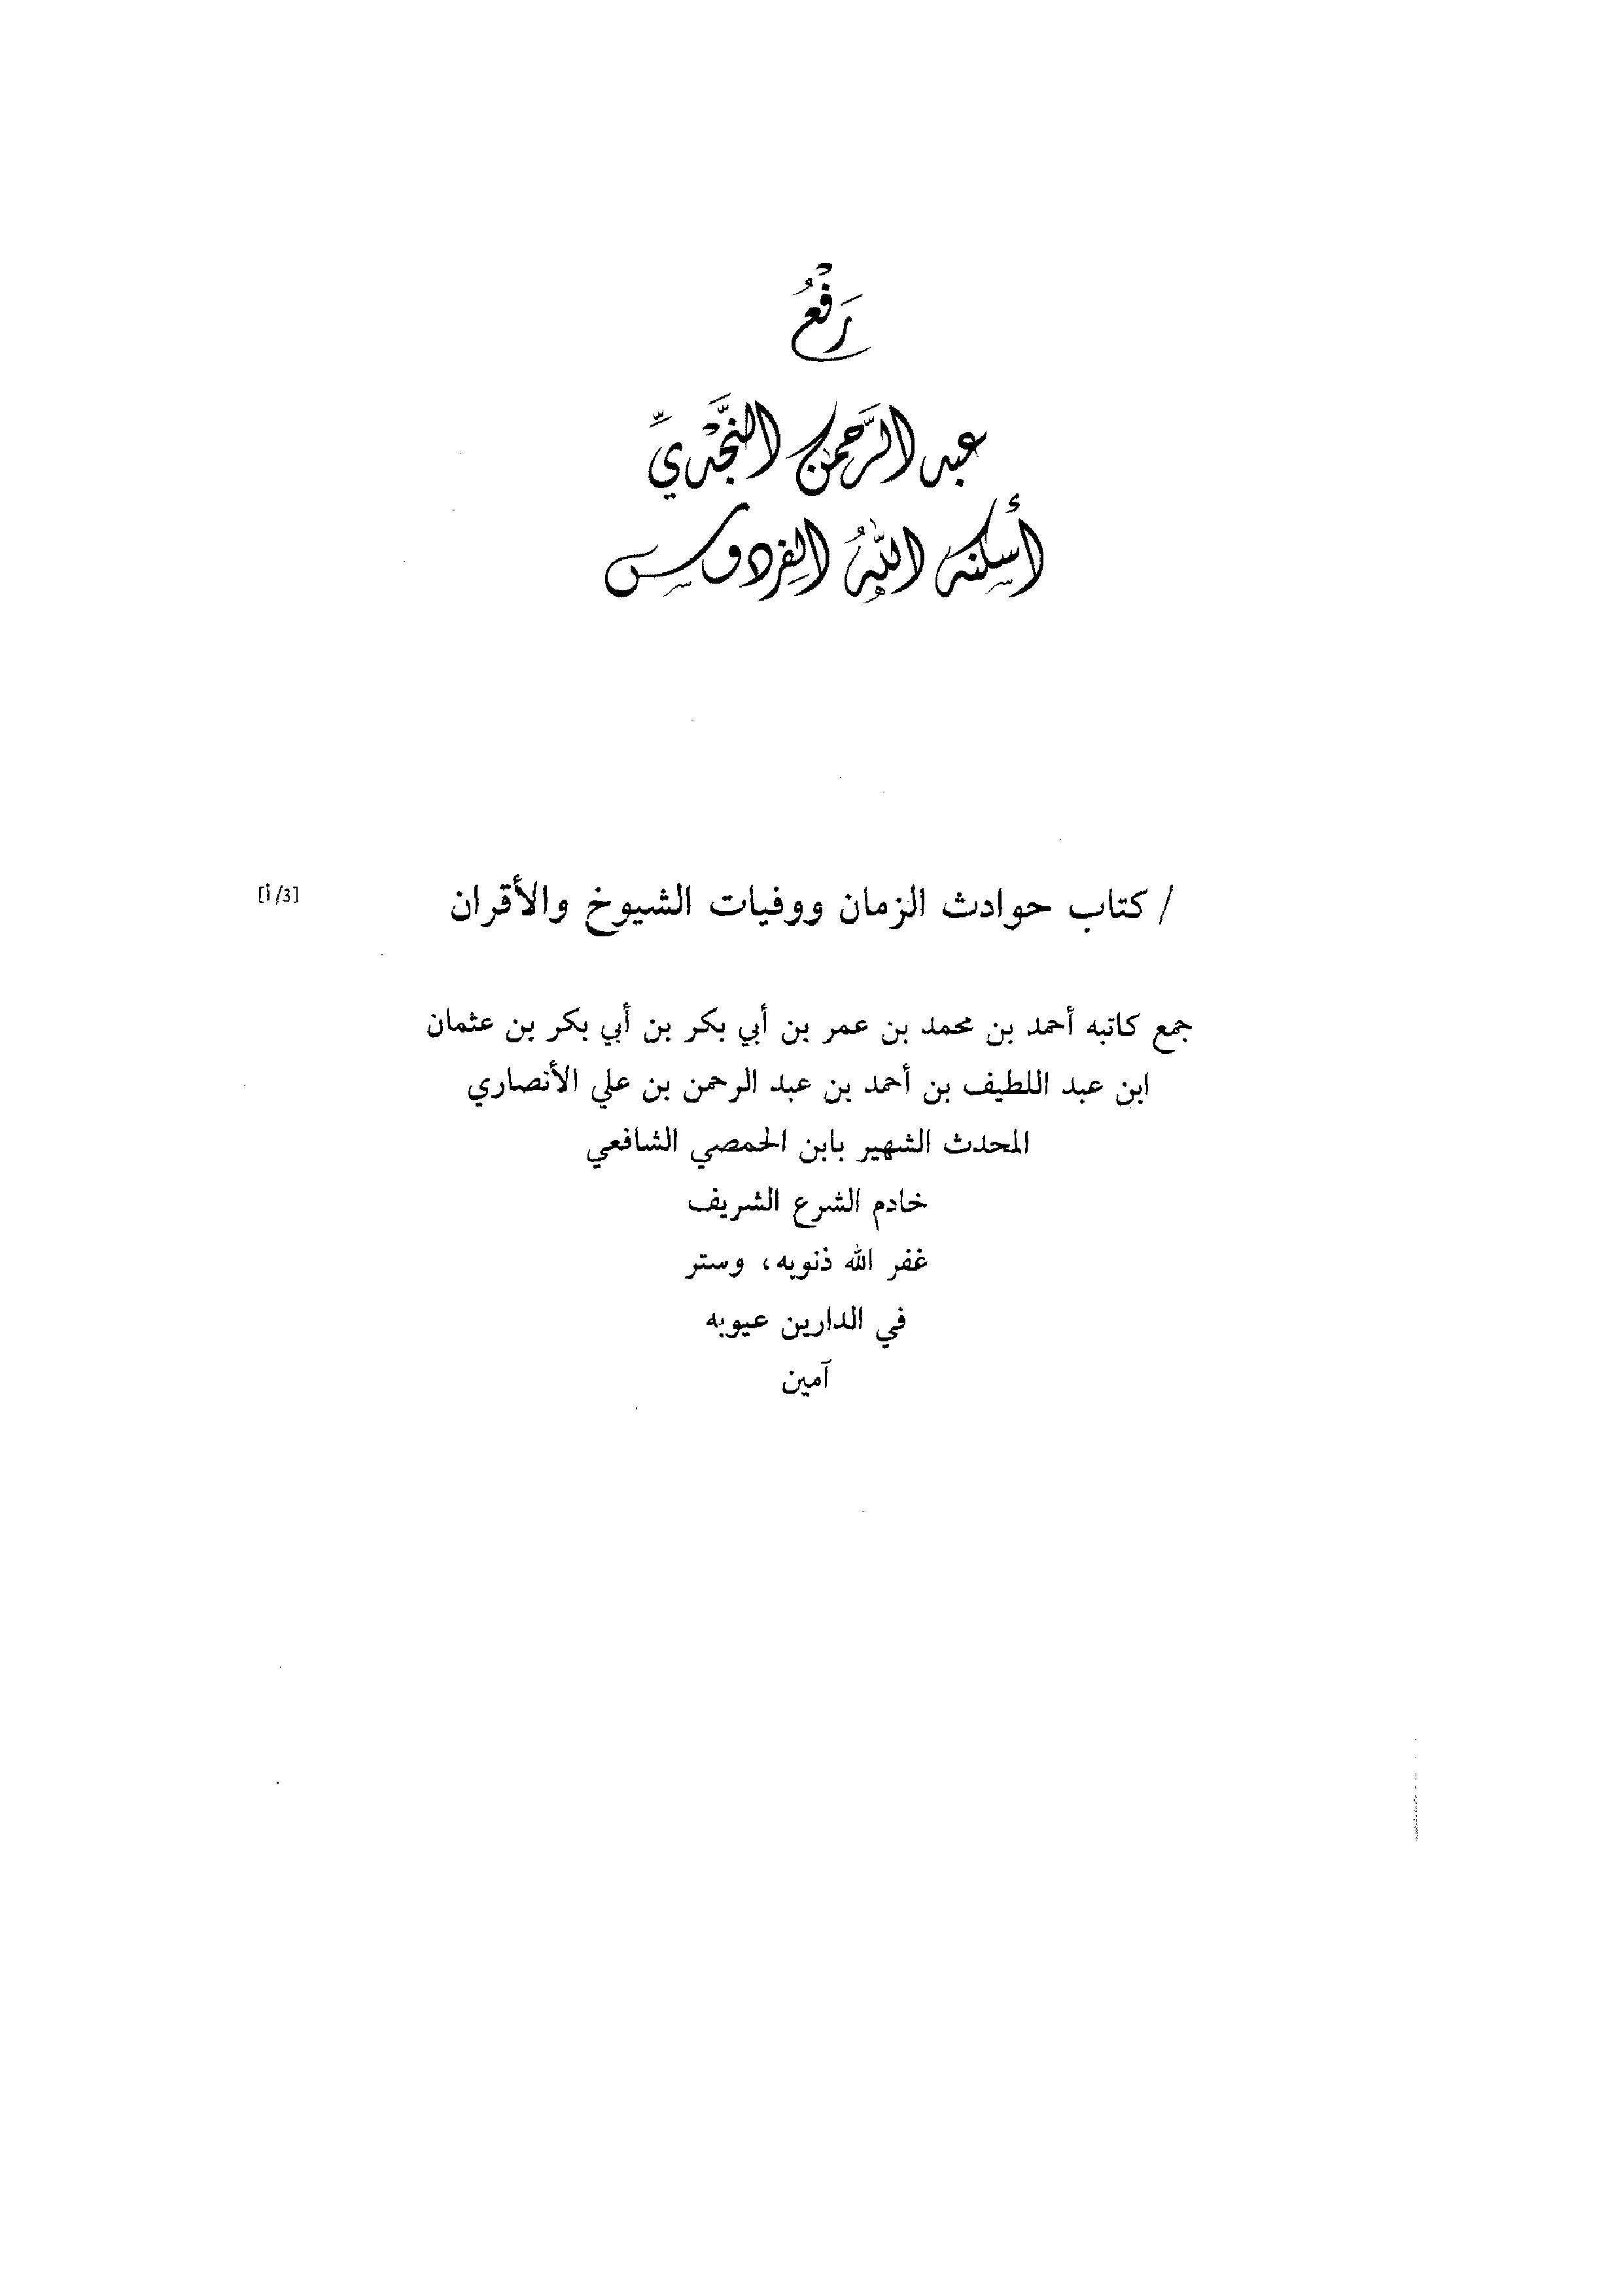 رَفْعُ
عبد الرَّحمن النَّجْديِّ
أسكنه اللهُ الفِردوس
/ كتاب حوادث الزمان ووفيات الشيوخ والأقران [3/أ]
جمع كاتبه أحمد بن محمد بن عمر بن أبي بكر بن أبي بكر بن عثمان
ابن عبد اللطيف بن أحمد بن عبد الرحمن بن علي الأنصاري
المحدث الشهير بابن الحمصي الشافعي
خادم الشرع الشريف
غفر الله ذنوبه، وستر
في الدارين عيوبه
آمين